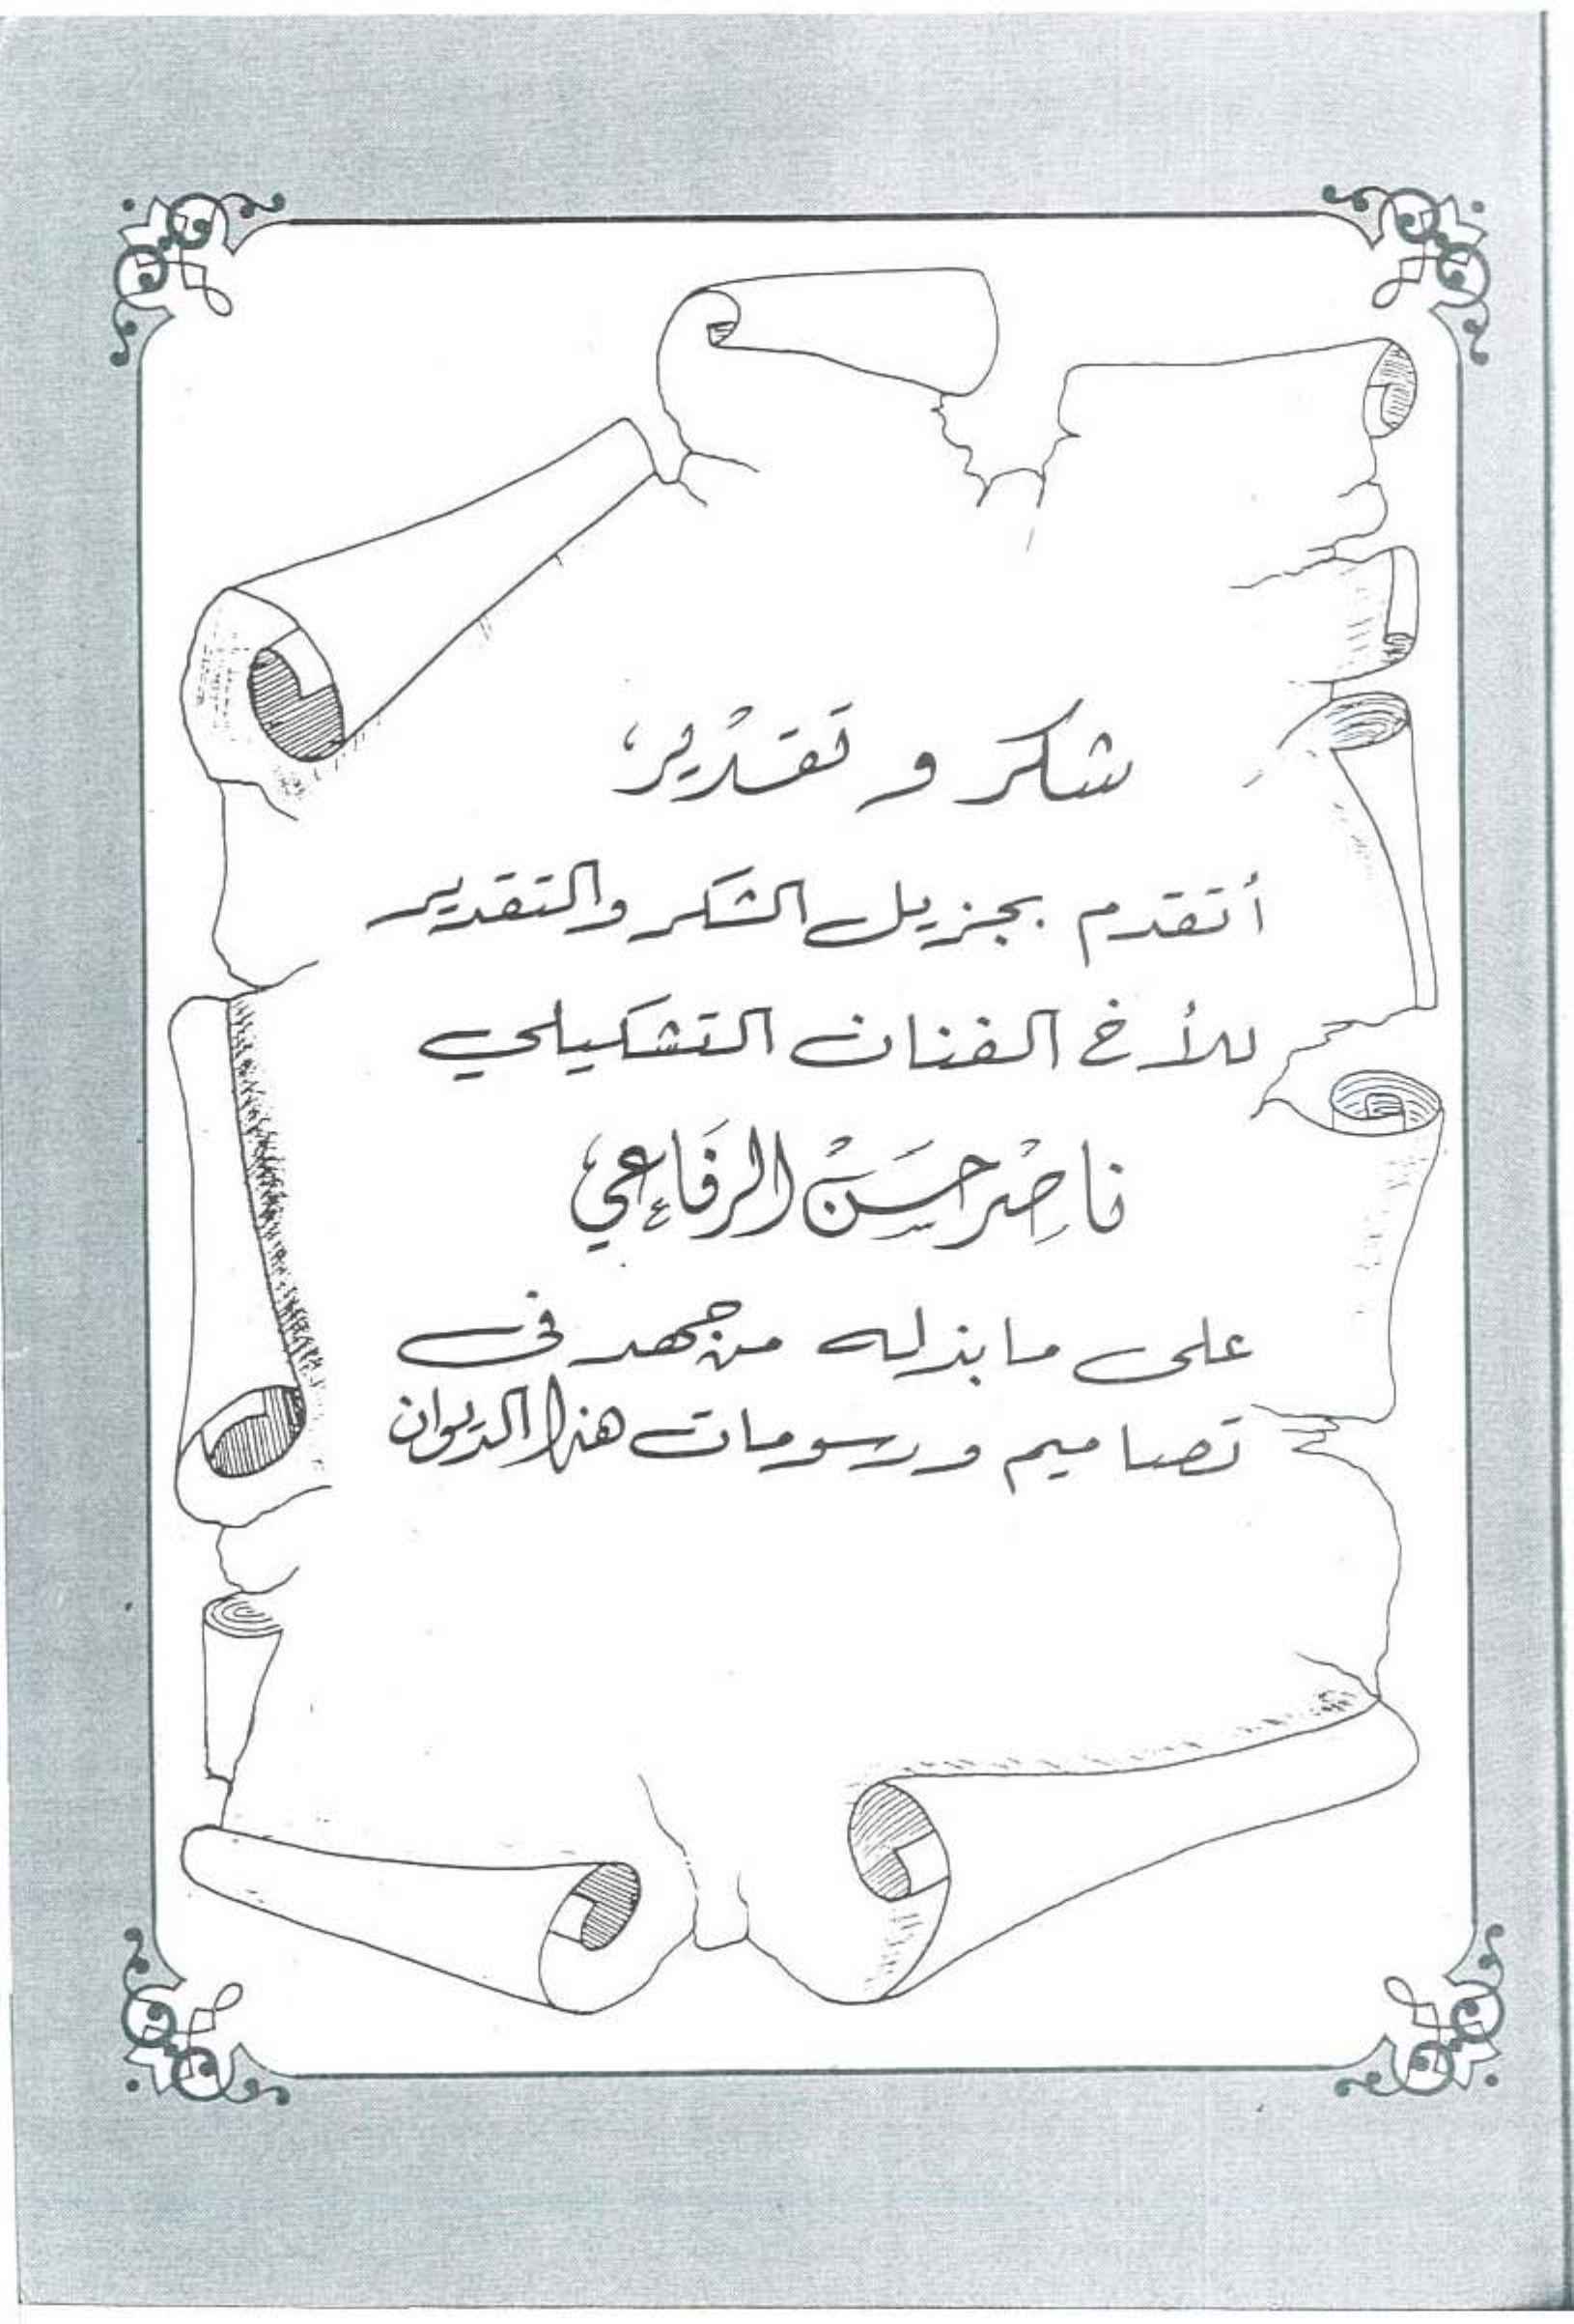 شكر و تقدير
أتقدم بجزيل الشكر والتقدير
للأخ الفنان التشكيلي
ناصر حسن الرفاعي
على ما بذله من جهد فى
تصاميم ورسومات هذا الديوان